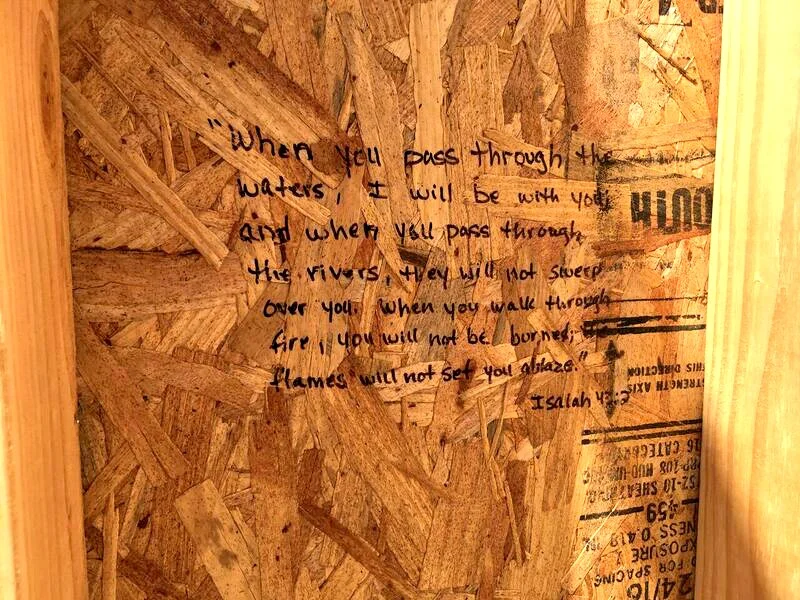 "When you pass through the
waters, I will be with you;
and when you pass through
the rivers, they will not sweep
over you. When you walk through
fire, you will not be burned; the
flames will not set you ablaze."
Isaiah 43:2
THIS DIRECTION
STRENGTH AXIS
16 CATEGORY
PRP-108
459
NESS 0.418 IN
FOR SPACING
24/16